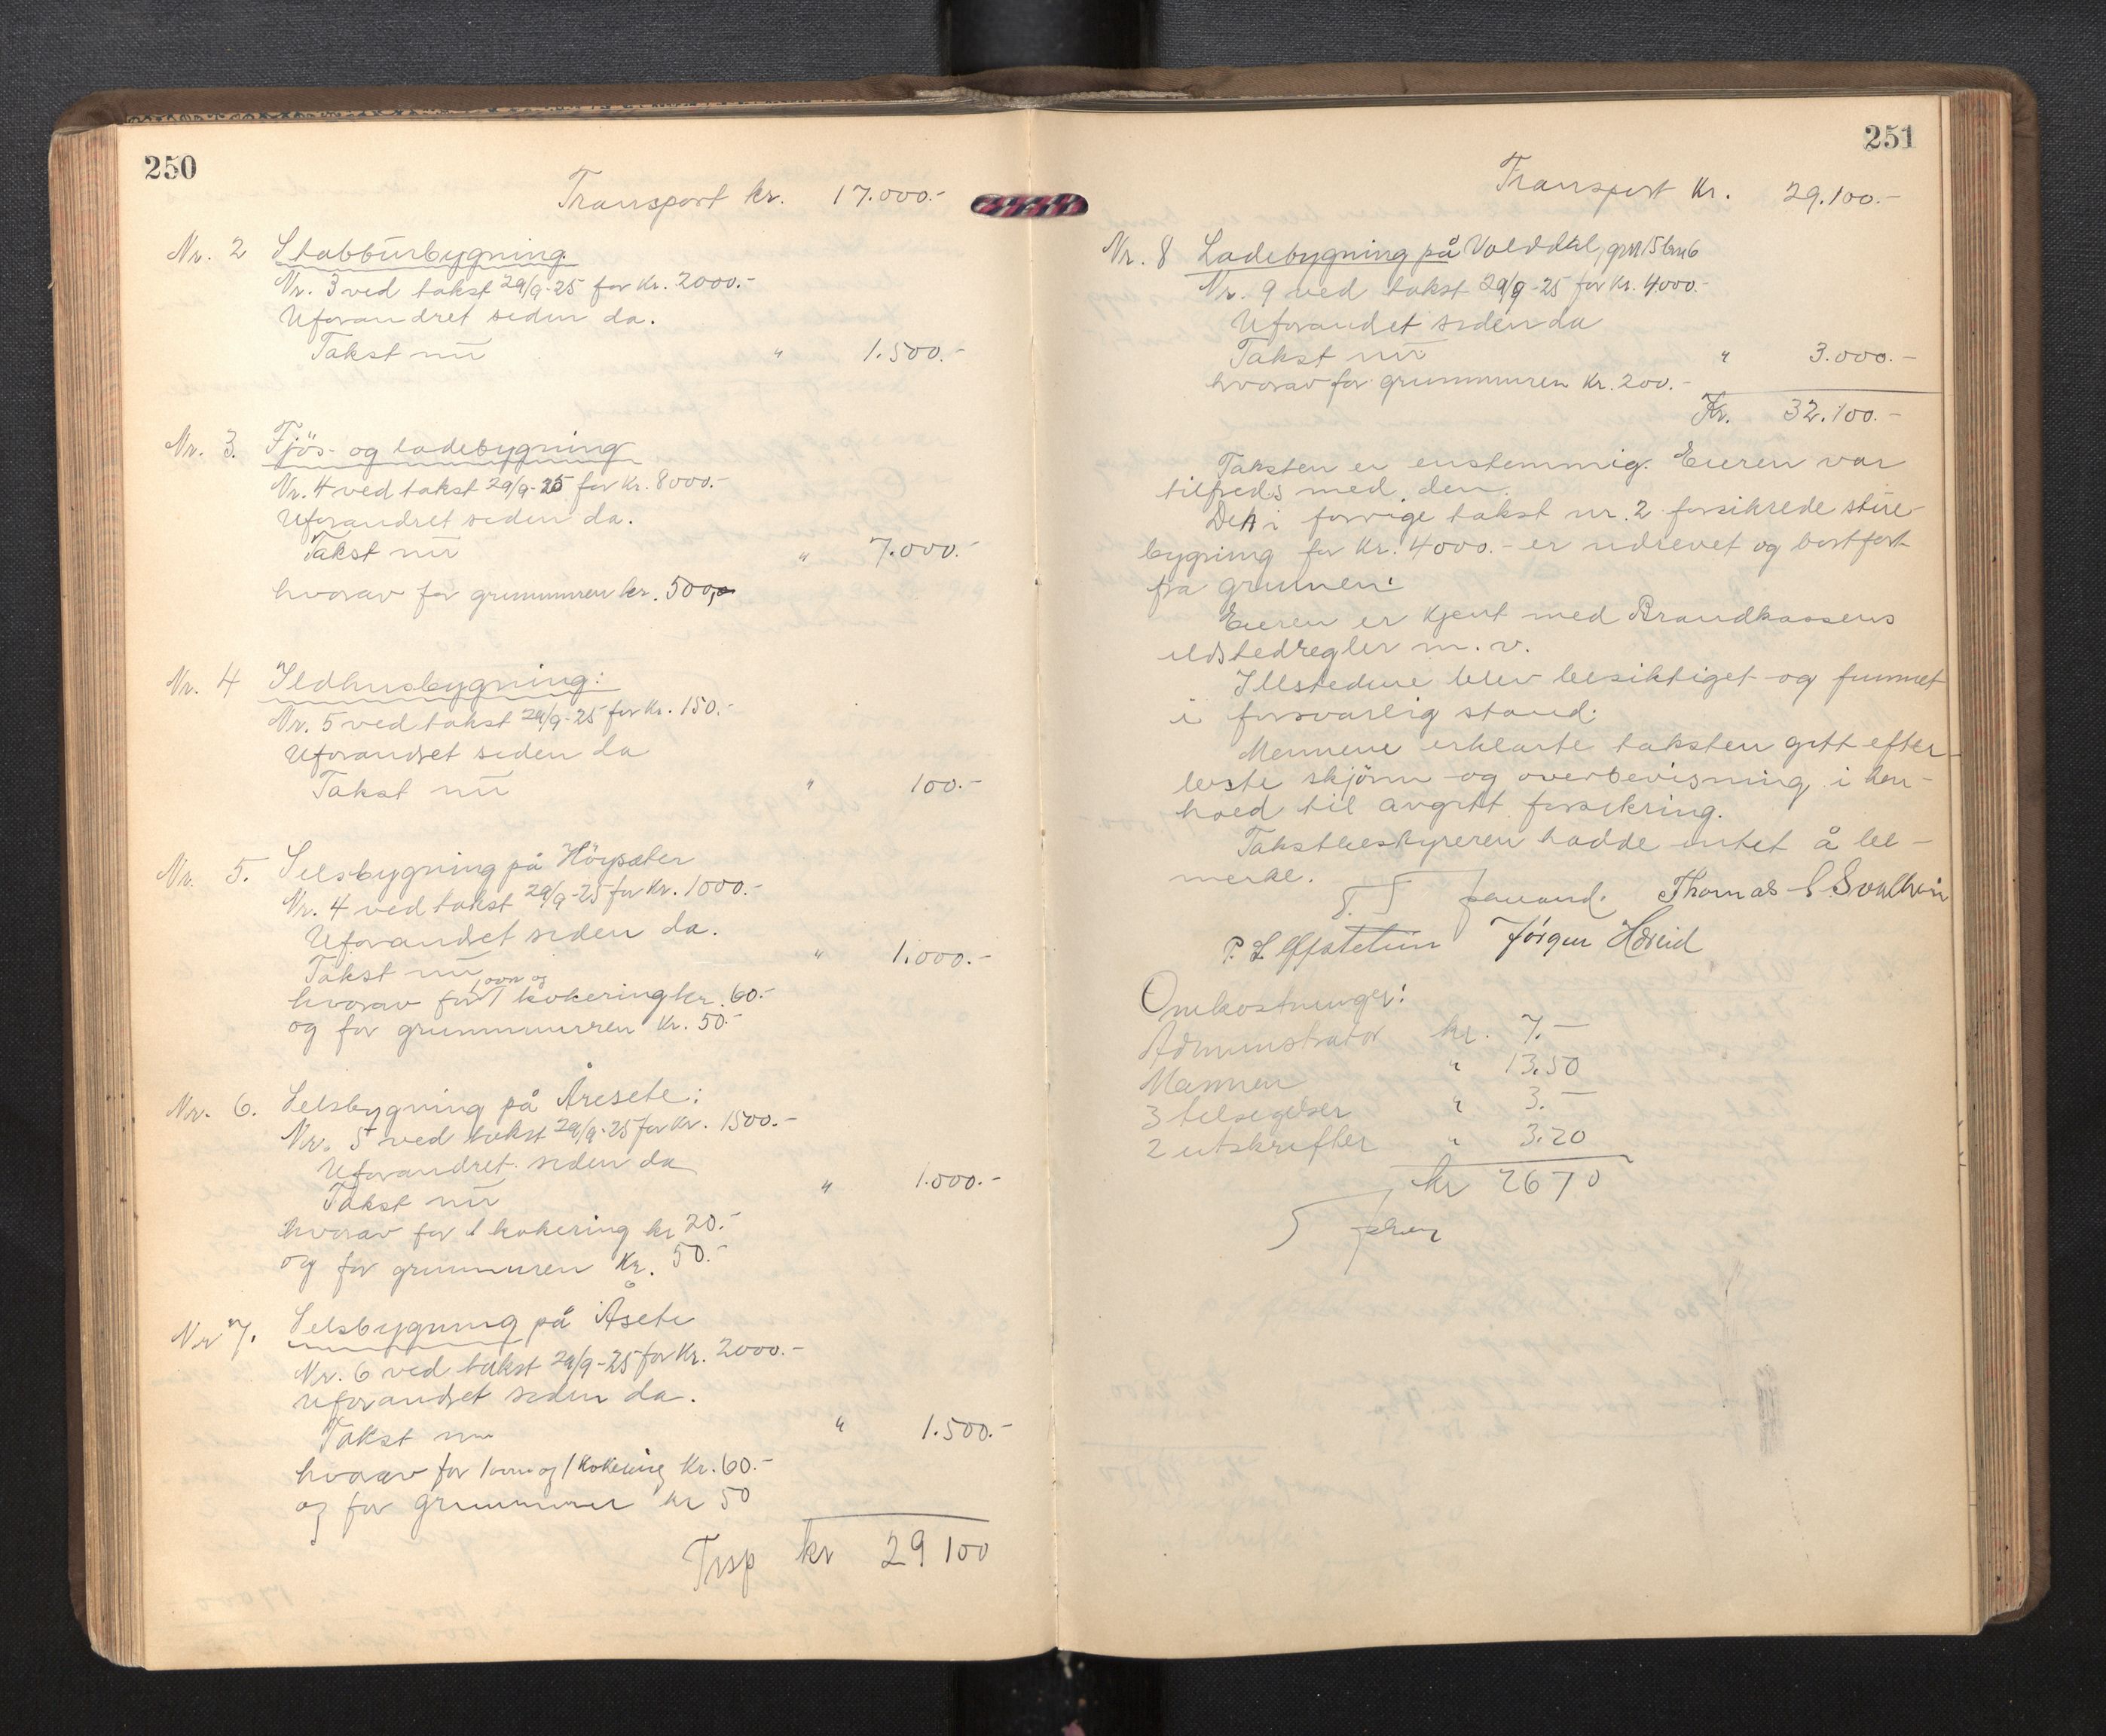 250
Transport kr. 17.000.-
Nr. 2 Stabbursbygning
Nr. 3 ved takst 29/9-25 for kr. 2000.-
Uforandret siden da.
Takst nu " 1.500.-
Nr. 3. Fjös- og ladebygning
Nr. 4 ved takst 29/9-25 for kr. 8000.-
Uforandret siden da.
Takst nu " 7.000.-
hvorav for grunnmuren kr. 500,-
Nr. 4 Ildhusbygning:
Nr. 5 ved takst 29/9-25 for kr. 150.-
Uforandret siden da
Takst nu " 100.-
Nr. 5. Selsbygning på Höysæter
Nr. 4 ved takst 29/9-25 for kr. 1000.-
Uforandret siden da.
Takst nu " 1.000.-
hvorav for 1 ovn og 1 kokering kr. 60.-
og for grunnmuren kr. 50.-
Nr. 6. Selsbygning på Åresete:
Nr. 5 ved takst 29/9-25 for kr. 1500.-
Uforandret siden da
Takst nu " 1.000.-
hvorav for 1 kokering kr 20.-
og for grunnmuren kr. 50.-
Nr 7. Selsbygning på Åsete
Nr. 6 ved takst 29/9-25 for kr. 2000.-
Uforandret siden da.
Takst nu " 1.500.-
hvorav for 1 ovn og 1 kokering kr. 60.-
og for grunnmur kr 50
Trsp kr 29100
251
Transport kr. 29.100.-
Nr. 8 Ladebygning på Volddal, grn 15 brn 6
Nr. 9 ved takst 29/9-25 for kr. 4000.-
Uforandret siden da
Takst nu " 3.000.-
hvorav for grunnmuren kr. 200.-
Kr. 32.100.-
Taksten er enstemmig. Eieren var
tilfreds med den.
Den i forrige takst nr. 2 forsikrede stue-
bygning for kr. 4000.- er nedrevet og bortført
fra grunnen.
Eieren er kjent med Brandkassens
ildstedregler m.v.
Illstedene blev besiktiget og funnet
i forsvarlig stand.
Mennene erklærte taksten gitt efter
beste skjönn og overbevisning i hen-
hold til avgitt forsikring.
Takstbestyreren hadde intet å be-
merke.
Thomas
P. L. Jørgen
Omkostninger:
Administrator kr. 7.-
Mennene " 13.50
3 tilsigelser " 3.-
2 utskrifter " 3.20
kr 26 70